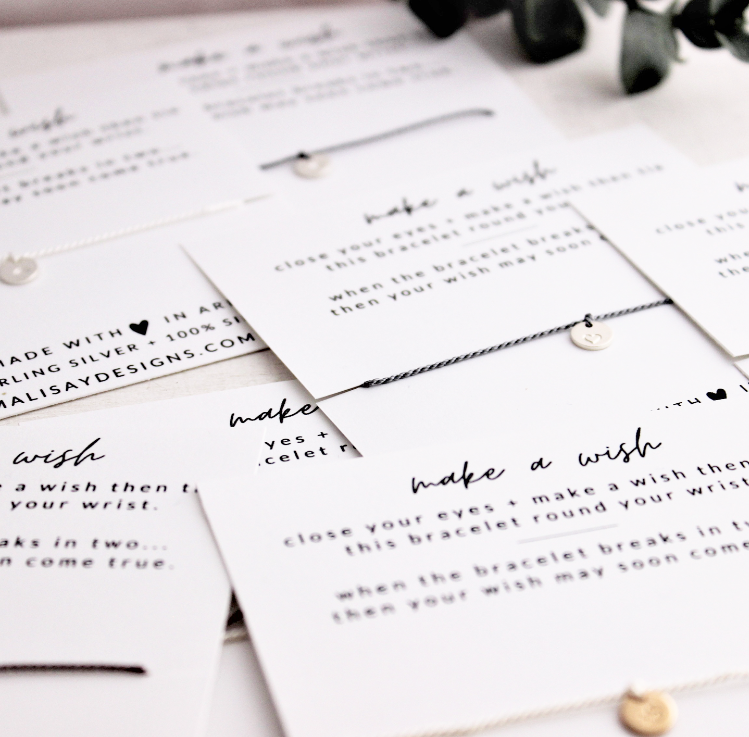 make a wish
wish
make a wish
close your eyes + make a wish then tie
this bracelet round you
when the bracelet breaks
then your wish may soon
close you
this
MADE WITH ♥ IN AR
RLING SILVER + 100% SI
MALISAYDESIGNS.COM
make
yes +
celet r
wish
e a wish then t
your wrist.
aks in two...
n come true.
make a wish
close your eyes + make a wish then
this bracelet round your wrist
when the bracelet breaks in t
then your wish may soon come